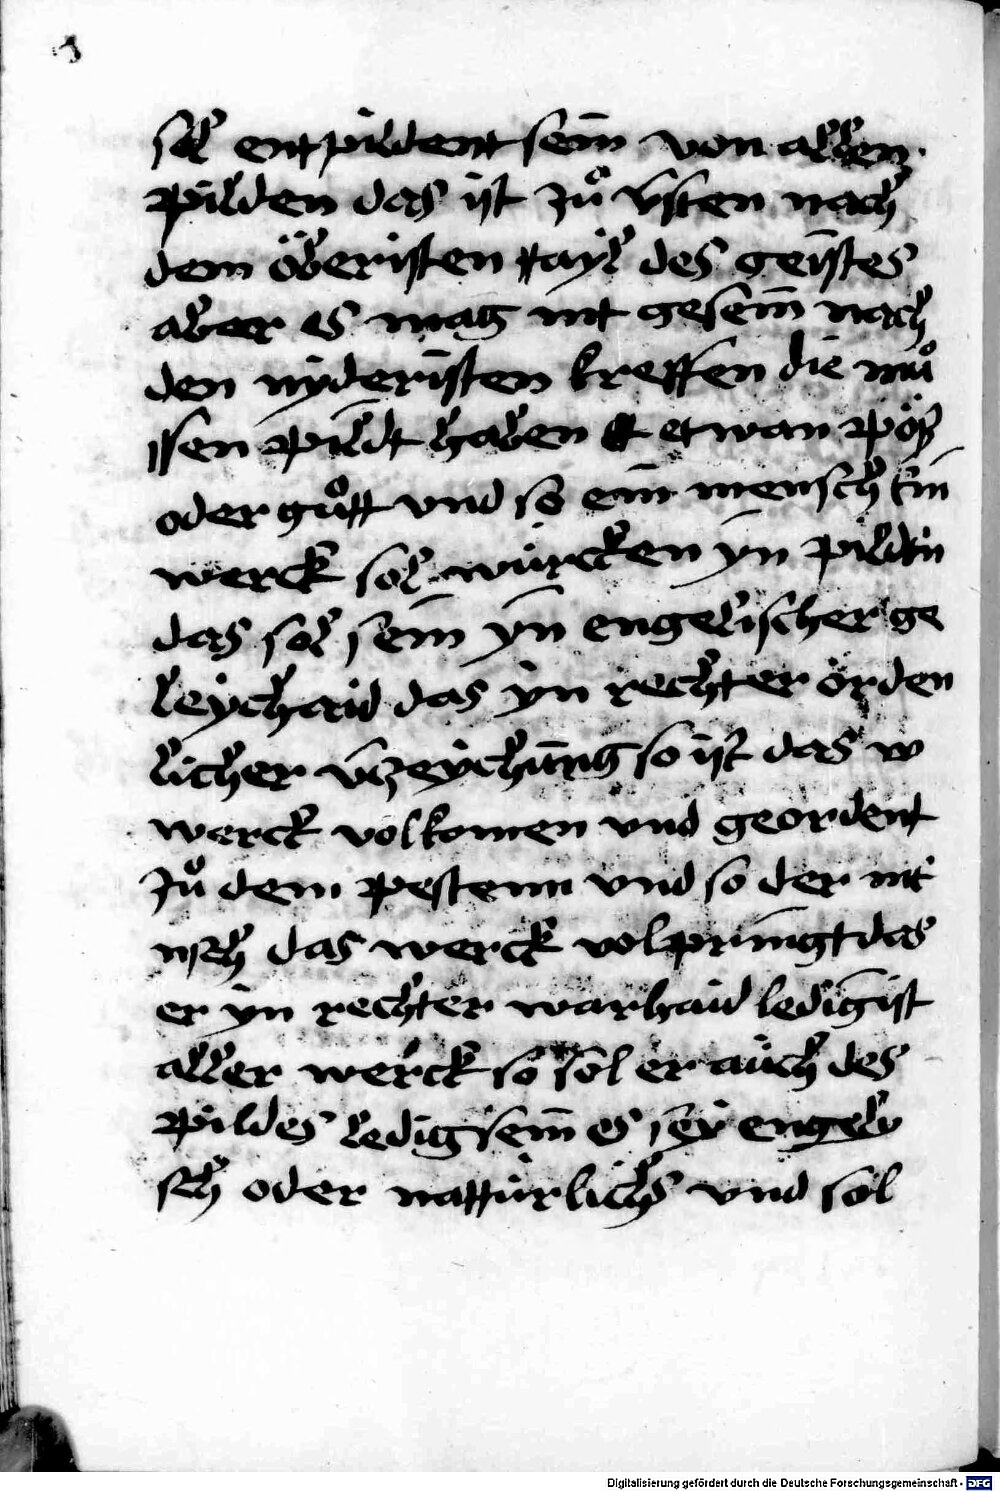 sol entpildent sein von allen
pilden das ist zuͦ v̈sten nach
dem öberisten tayl des geistes
aber es mag nit gesein nach
den nyderisten kreffen die muͦ
ssen pildt haben etwan pöß
oder guͦtt vnd so ein mensch ein
werck sol würcken yn pilden
das sol sein yn engelischer ge
leychaid das yn rechter örden
licher v̈zeychung so ist das w
werck volkomen vnd geordent
zuͦ dem pestenn vnd so der
das werck volpringt das
er yn rechter warhaid ledig ist
aller werck so sol er auch des
pildes ledig sein es sey engely
sch oder nattürlichs vnd sol
Digitalisierung gefördert durch die Deutsche Forschungsgemeinschaft - DFG